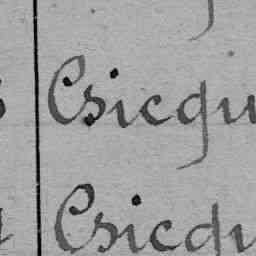 Csicqu
Csicqu